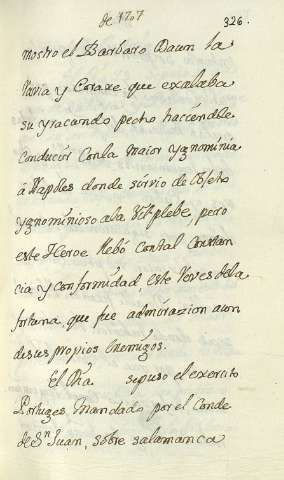 de 1707
326.
mostro el Barbaro Daun la
Ravia y Coraxe que exalaba
su yracundo pecho haciendole
Conducir Con la maior ygnominia
á Napoles donde sirvio de Obgeto
ygnominioso a la Vil plebe, pero
este Heroe llebó Contal Constan
cia y conformidad este Reves de la
fortuna, que fue admirazion aun
de sus propios Enemigos.
El Dia sepuso el exercito
Portuges Mandado por el Conde
de Sn Juan, sobre Salamanca